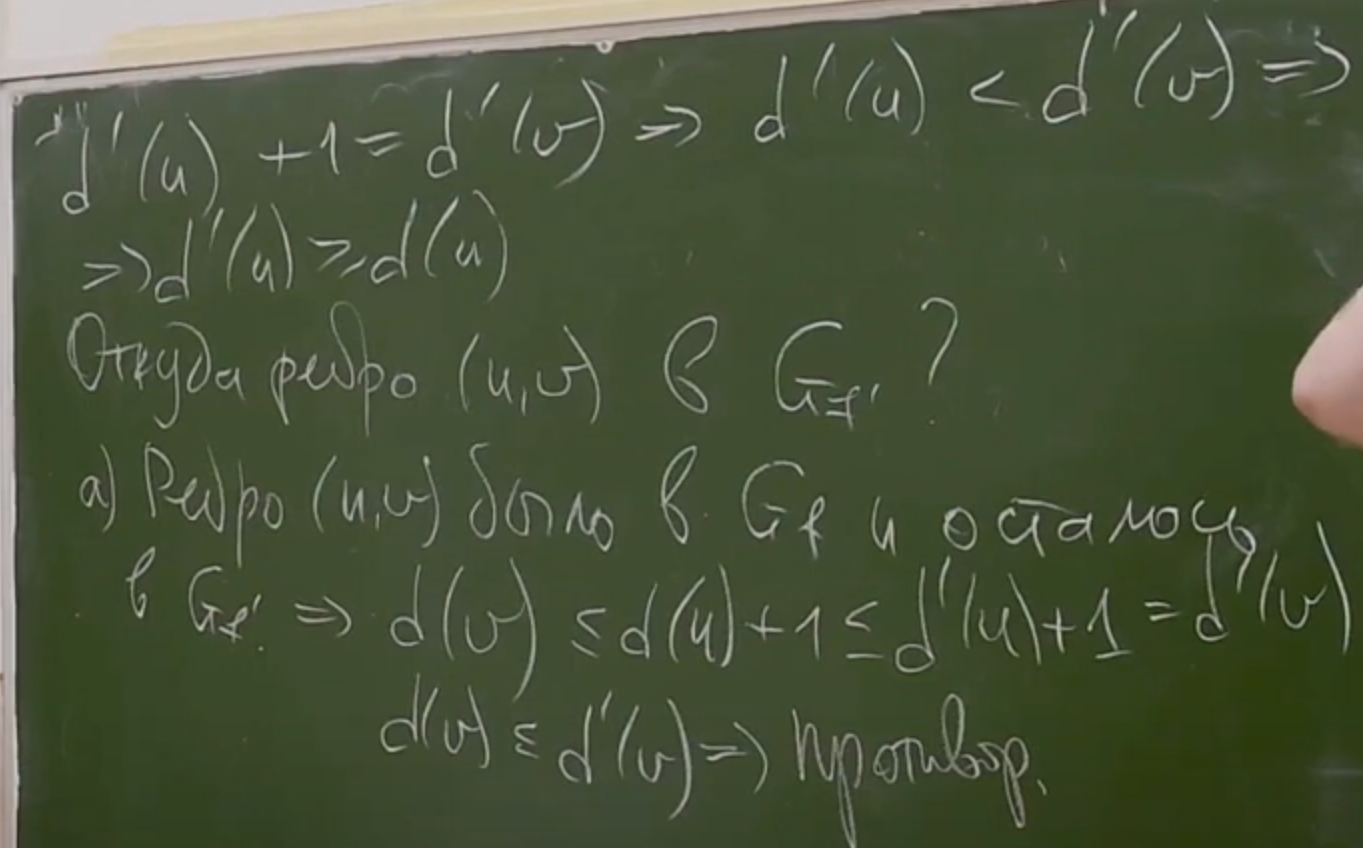 d'(u) + 1 = d'(v) => d'(u) < d'(v) =>
=> d'(u) ⩾ d(u)
Откуда ребро (u,v) в G_f' ?
а) Ребро (u,v) было в G_f и осталось
в G_f' => d(v) ≤ d(u)+1 ≤ d'(u)+1 = d'(v)
d(v) ≤ d'(v) => против.